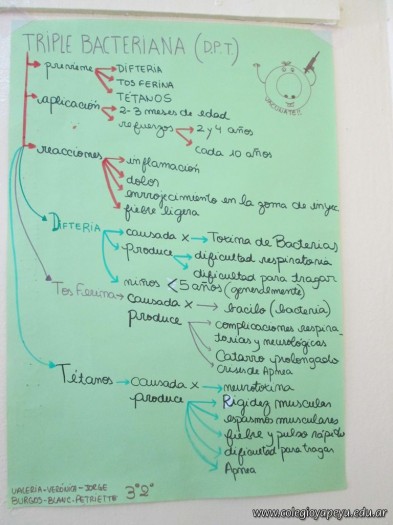 TRIPLE BACTERIANA (D.P.T.)
previene DIFTERIA
TOS FERINA
TÉTANOS
aplicación 2-3 meses de edad
refuerzos 2 y 4 años
cada 10 años
VACUNATE!!
reacciones inflamación
dolor
enrrojecimiento en la zona de inyec
fiebre ligera
DIFTERIA causada x Toxina de Bacterias
produce dificultad respiratoria
dificultad para tragar
niños < 5 años (generalmente)
Tos Ferina causada x bacilo (bacteria)
produce complicaciones respira-
torias y neurológicas
Catarro prolongado
Crisis de Apnea
Tétanos causada x neurotoxina
produce Rigidez muscular
espasmos musculares
fiebre y pulso rápido
dificultad para tragar
Apnea
VALERIA-VERÓNICA-JORGE
BURGOS-BLANC-PETRIETTE 3°2°
www.colegioyapeyu.edu.ar